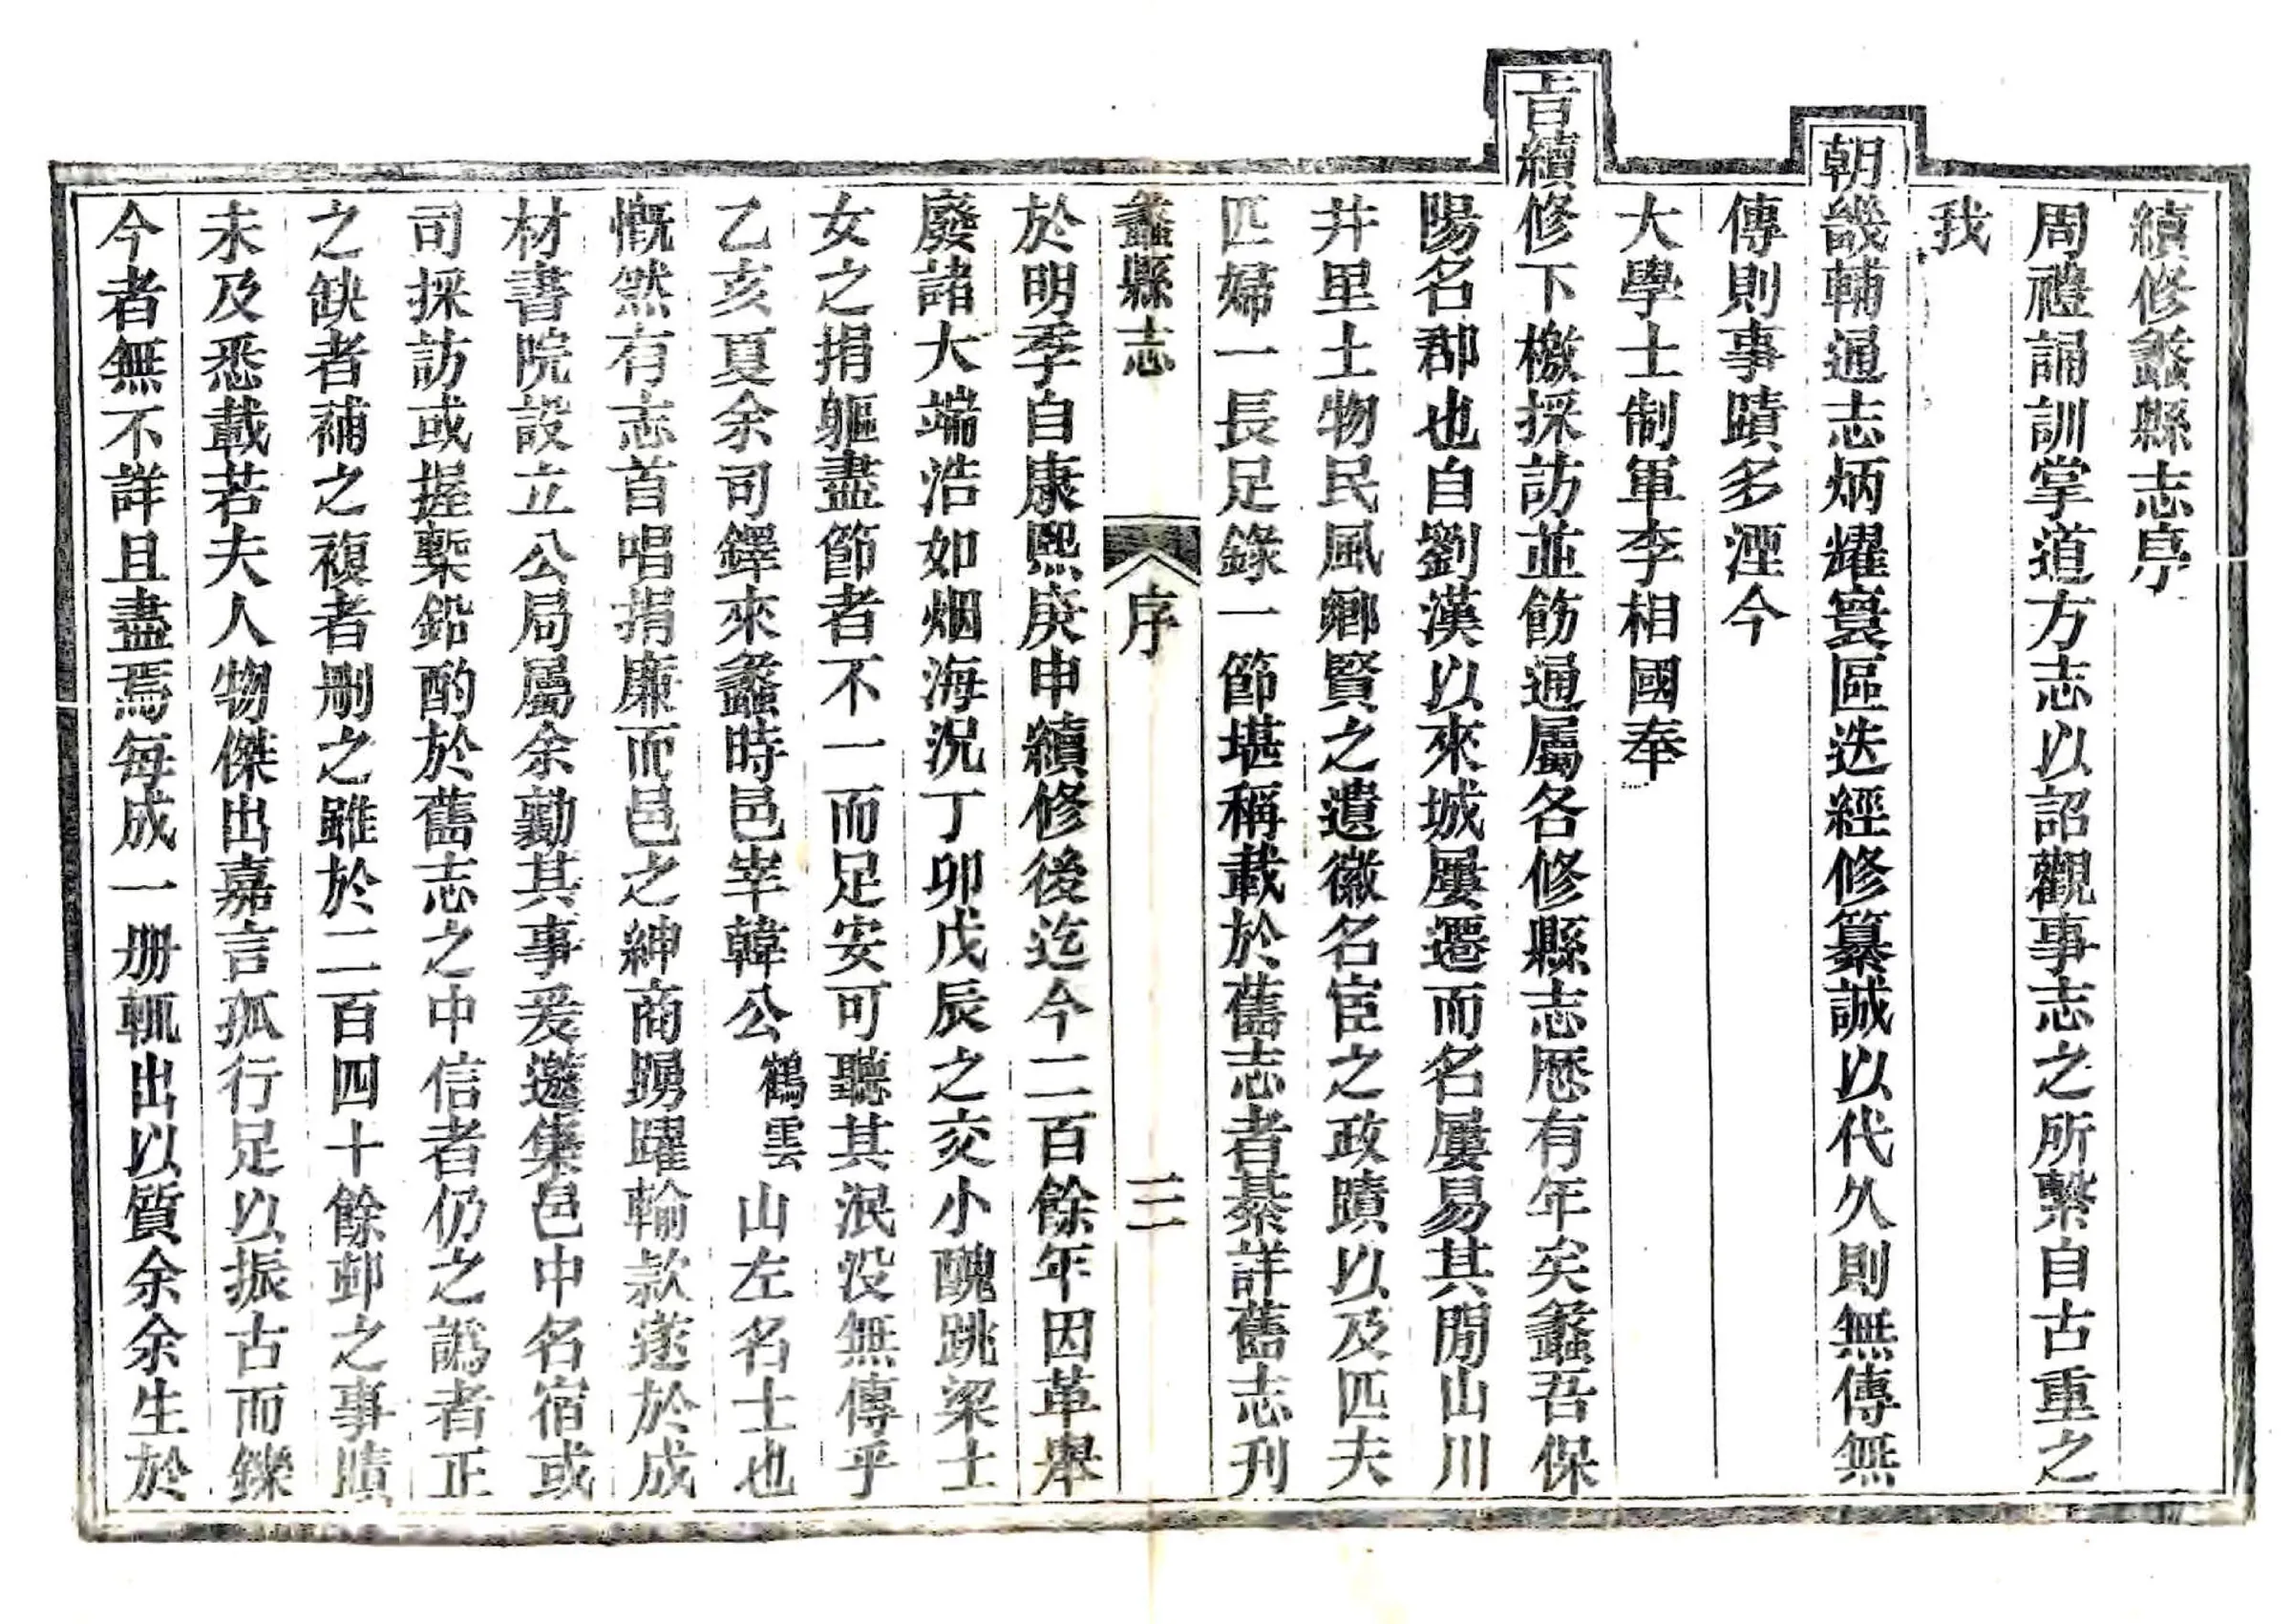 續修蠡縣志序
周禮誦訓掌道方志以詔觀事志之所繫自古重之
我
朝畿輔通志炳燿寰區迭經修纂誠以代久則無傳無
傳則事蹟多湮今
大學士制軍李相國奉
旨續修下檄採訪並飭通屬各修縣志歷有年矣蠡吾保
陽名郡也自劉漢以來城屢遷而名屢易其閒山川
井里土物民風鄉賢之遺徽名宦之政蹟以及匹夫
匹婦一長足錄一節堪稱載於舊志者綦詳舊志刋
蠡縣志 序 三
於明季自康熙庚申續修後迄今二百餘年因革舉
廢諸大端浩如烟海況丁卯戊辰之交小醜跳梁士
女之捐軀盡節者不一而足安可聽其泯没無傳乎
乙亥夏余司鐸來蠡時邑宰韓公鶴雲山左名士也
慨然有志首唱捐廉而邑之紳商踴躍輸款遂於成
材書院設立公局屬余勷其事爰邀集邑中名宿或
司採訪或握槧鉛酌於舊志之中信者仍之譌者正
之缺者補之複者刪之雖於二百四十餘邨之事蹟
未及悉載若夫人物傑出嘉言孤行足以振古而鑠
今者無不詳且盡焉每成一册輒出以質余余生於